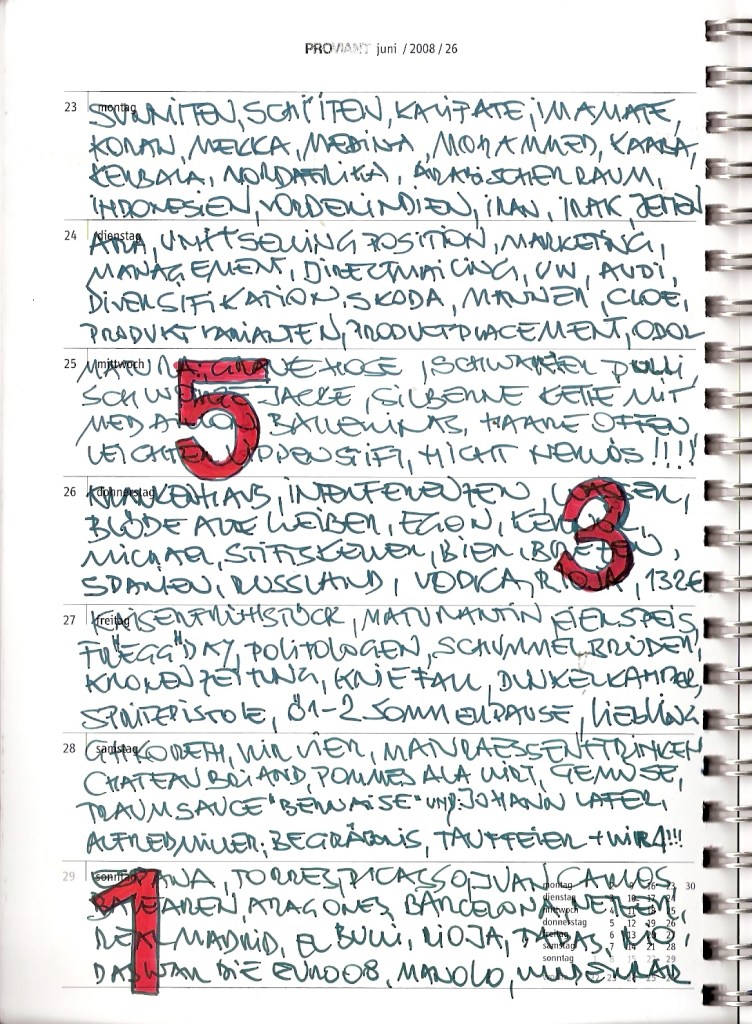 PROVIANT juni / 2008 / 26
23 montag
SUNNITEN, SCHIITEN, KALIFATE, IMAMATE,
KORAN, MEKKA, MEDINA, MOHAMMED, KAABA,
KERBALA, NORDAFRIKA, ARABISCHER RAUM,
INDONESIEN, VORDERINDIEN, IRAN, IRAK, JEMEN
24 dienstag
UNIT SELLING POSITION, MARKETING,
MANAGEMENT, DIRECTMAILING, VW, AUDI,
DIVERSIFIKATION, SKODA, MÄNNER, CLOE,
PRODUKTVARIANTEN, PRODUCTPLACEMENT, ODOL
25 mittwoch
MATURA, SCHWARZER PULLI
SCHWARZE JACKE, SILBERNE KETTE MIT
MEDAILLON BALLERINAS, HAARE OFFEN
LEICHTER LIPPENSTIFT, NICHT NERVÖS !!!!
5
26 donnerstag
KRANKENHAUS, INTERFERENZEN,
BLÖDE ALTE WEIBER, EGON,
MICHAEL, STIFTSKELLER, BIER, BREZEN,
SPANIEN, RUSSLAND, VODKA, RIOJA, 132€
3
27 freitag
KAISERFRÜHSTÜCK, MATURANTIN EIERSPEIS,
"EGG" DAY, POLITOLOGEN, SCHUMMELBRÜDER,
KRONENZEITUNG, KNIEFALL, DUNKELKAMMER,
SPRITZPISTOLE, Ö1-2 SOMMERPAUSE, LIEBLING
28 samstag
WIR VIER, TRINKEN
CHATEAUBRIAND, POMMES A LA WIRT, GEMÜSE,
TRAUMSAUCE "BERNAISE" UND JOHANN LAFER,
ALFRED MILLER, BEGRÄBNIS, TAUFFEIER + WIR 4!!!
29 sonntag
TORRES, PICASSO, JUAN CARLOS
BALEAREN, ARAGONES, BARCELONA,
REAL MADRID, EL BULLI, RIOJA, TAPAS,
DAS WAR DIE EURO 08, MANOLO,
1
montag 2 9 16 23 30
dienstag 3 10 17 24
mittwoch 4 11 18 25
donnerstag 5 12 19 26
freitag 6 13 20 27
samstag 7 14 21 28
sonntag 1 8 15 22 29